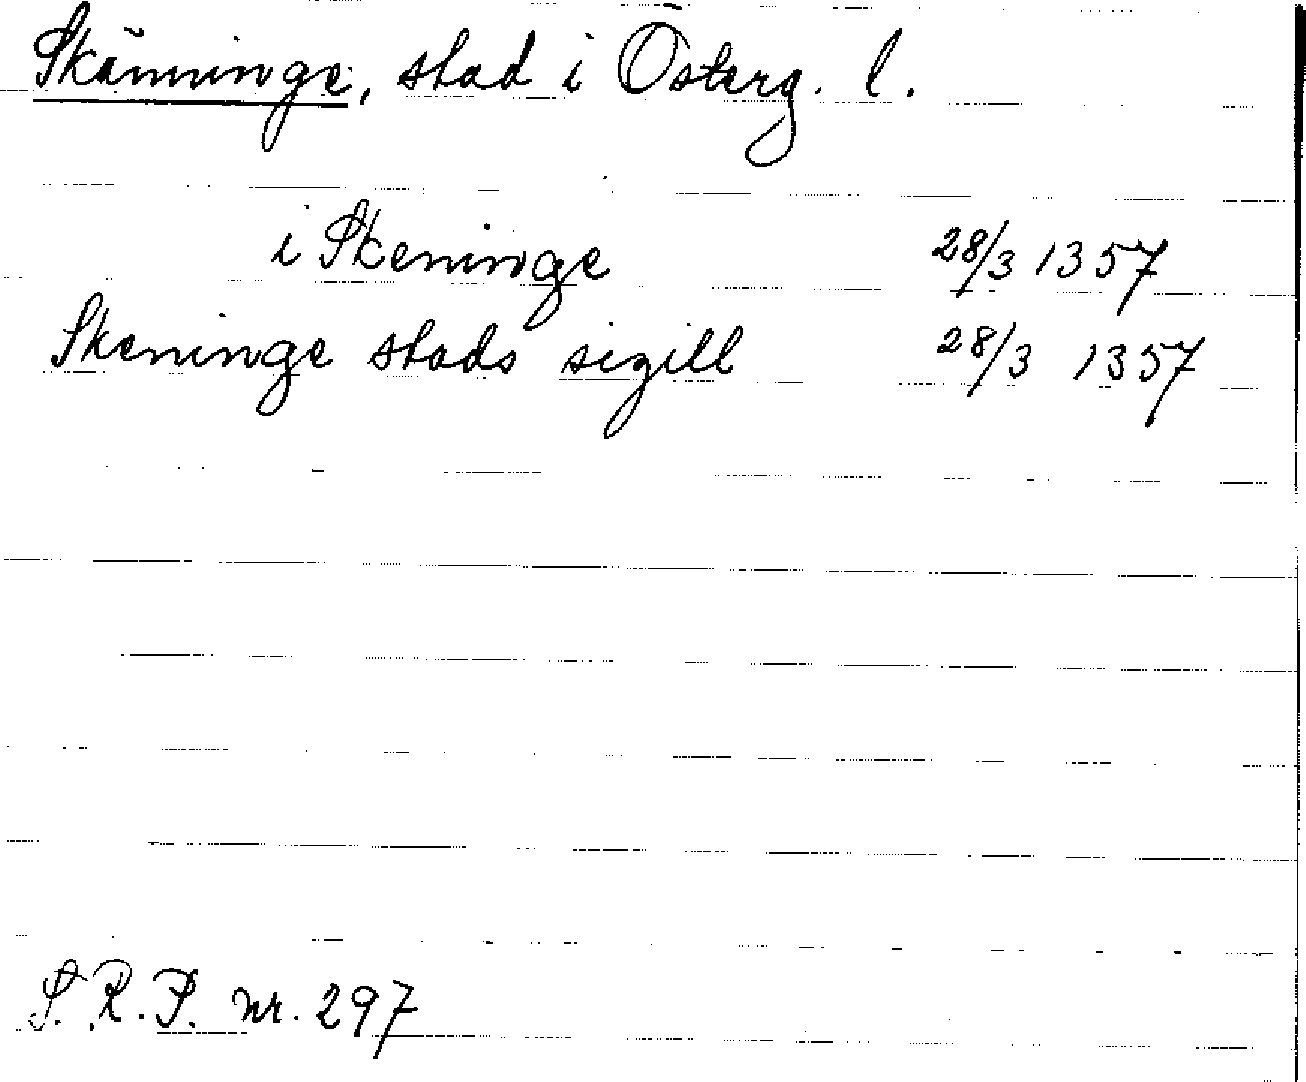 Skänninge, stad i Österg. l.
i Skeninge 28/3 1357
Skeninge stads sigill 28/3 1357
S.R.P. nr. 297